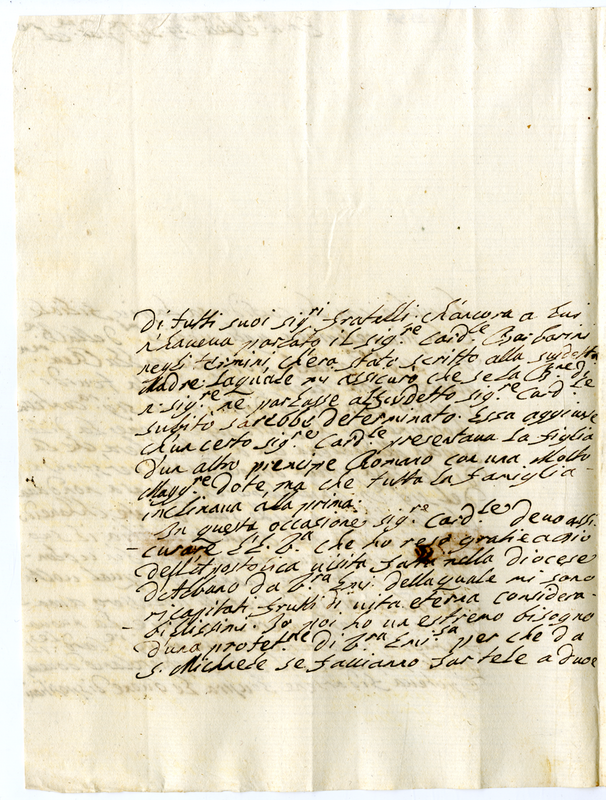 Di tutti suoi sig.ri fratelli. ch'ancora a Lui
n'haueua parlato il sig.re Card.le Barbarini
negli termini, ch'era stato scritto alla sudetta
Madre laquale mi assicurò che se la B.ne di
n. sig.re ne parlasse al sudetto sig.re Card.le
subito sarebbe determinato. Essa aggiunse
ch'un certo sig.re Card.le presentaua la figlia
d'un altro prencipe Romano con una Molto
Magg.re dote, ma che tutta la famiglia
inclinaua alla prima.
In questa occasione sig.re Card.le deuo assi-
curare l'E. V.ra che ho reso gratie a Dio
dell'Apostolica uisita fatta nella diocese
d'Albano da V.ra Emi. dellaquale mi sono
ricapitati frutti di uita eterna considera-
bilissimi. Io poi ho un estremo bisogno
d'una protet.ne di V.ra Emi.za per che da
s. Michaele se facciamo sur tele a due